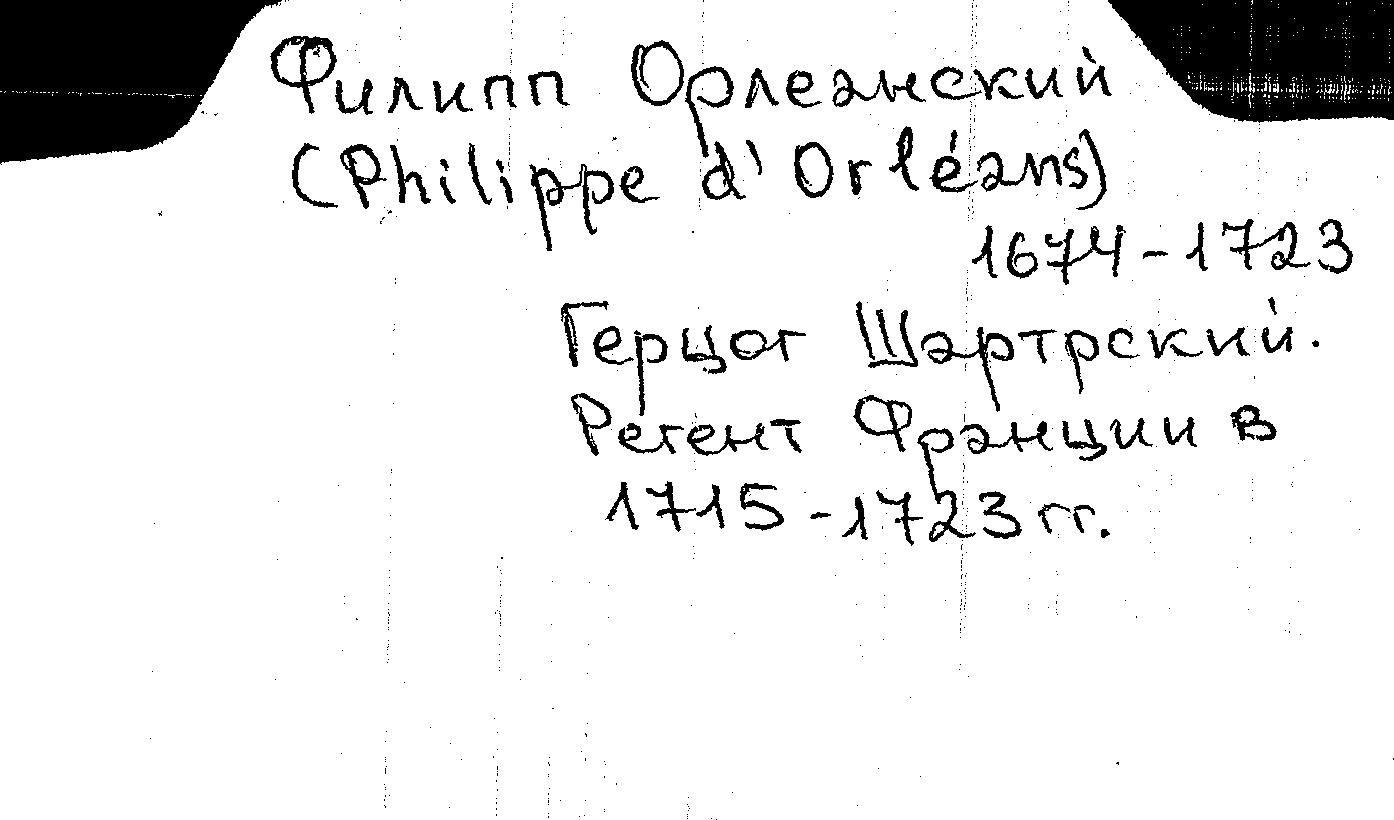 Филипп Орлеанский
(Philippe d'Orléans)
1674-1723
Герцог Шартрский.
Регент Франции в
1715-1723 гг.